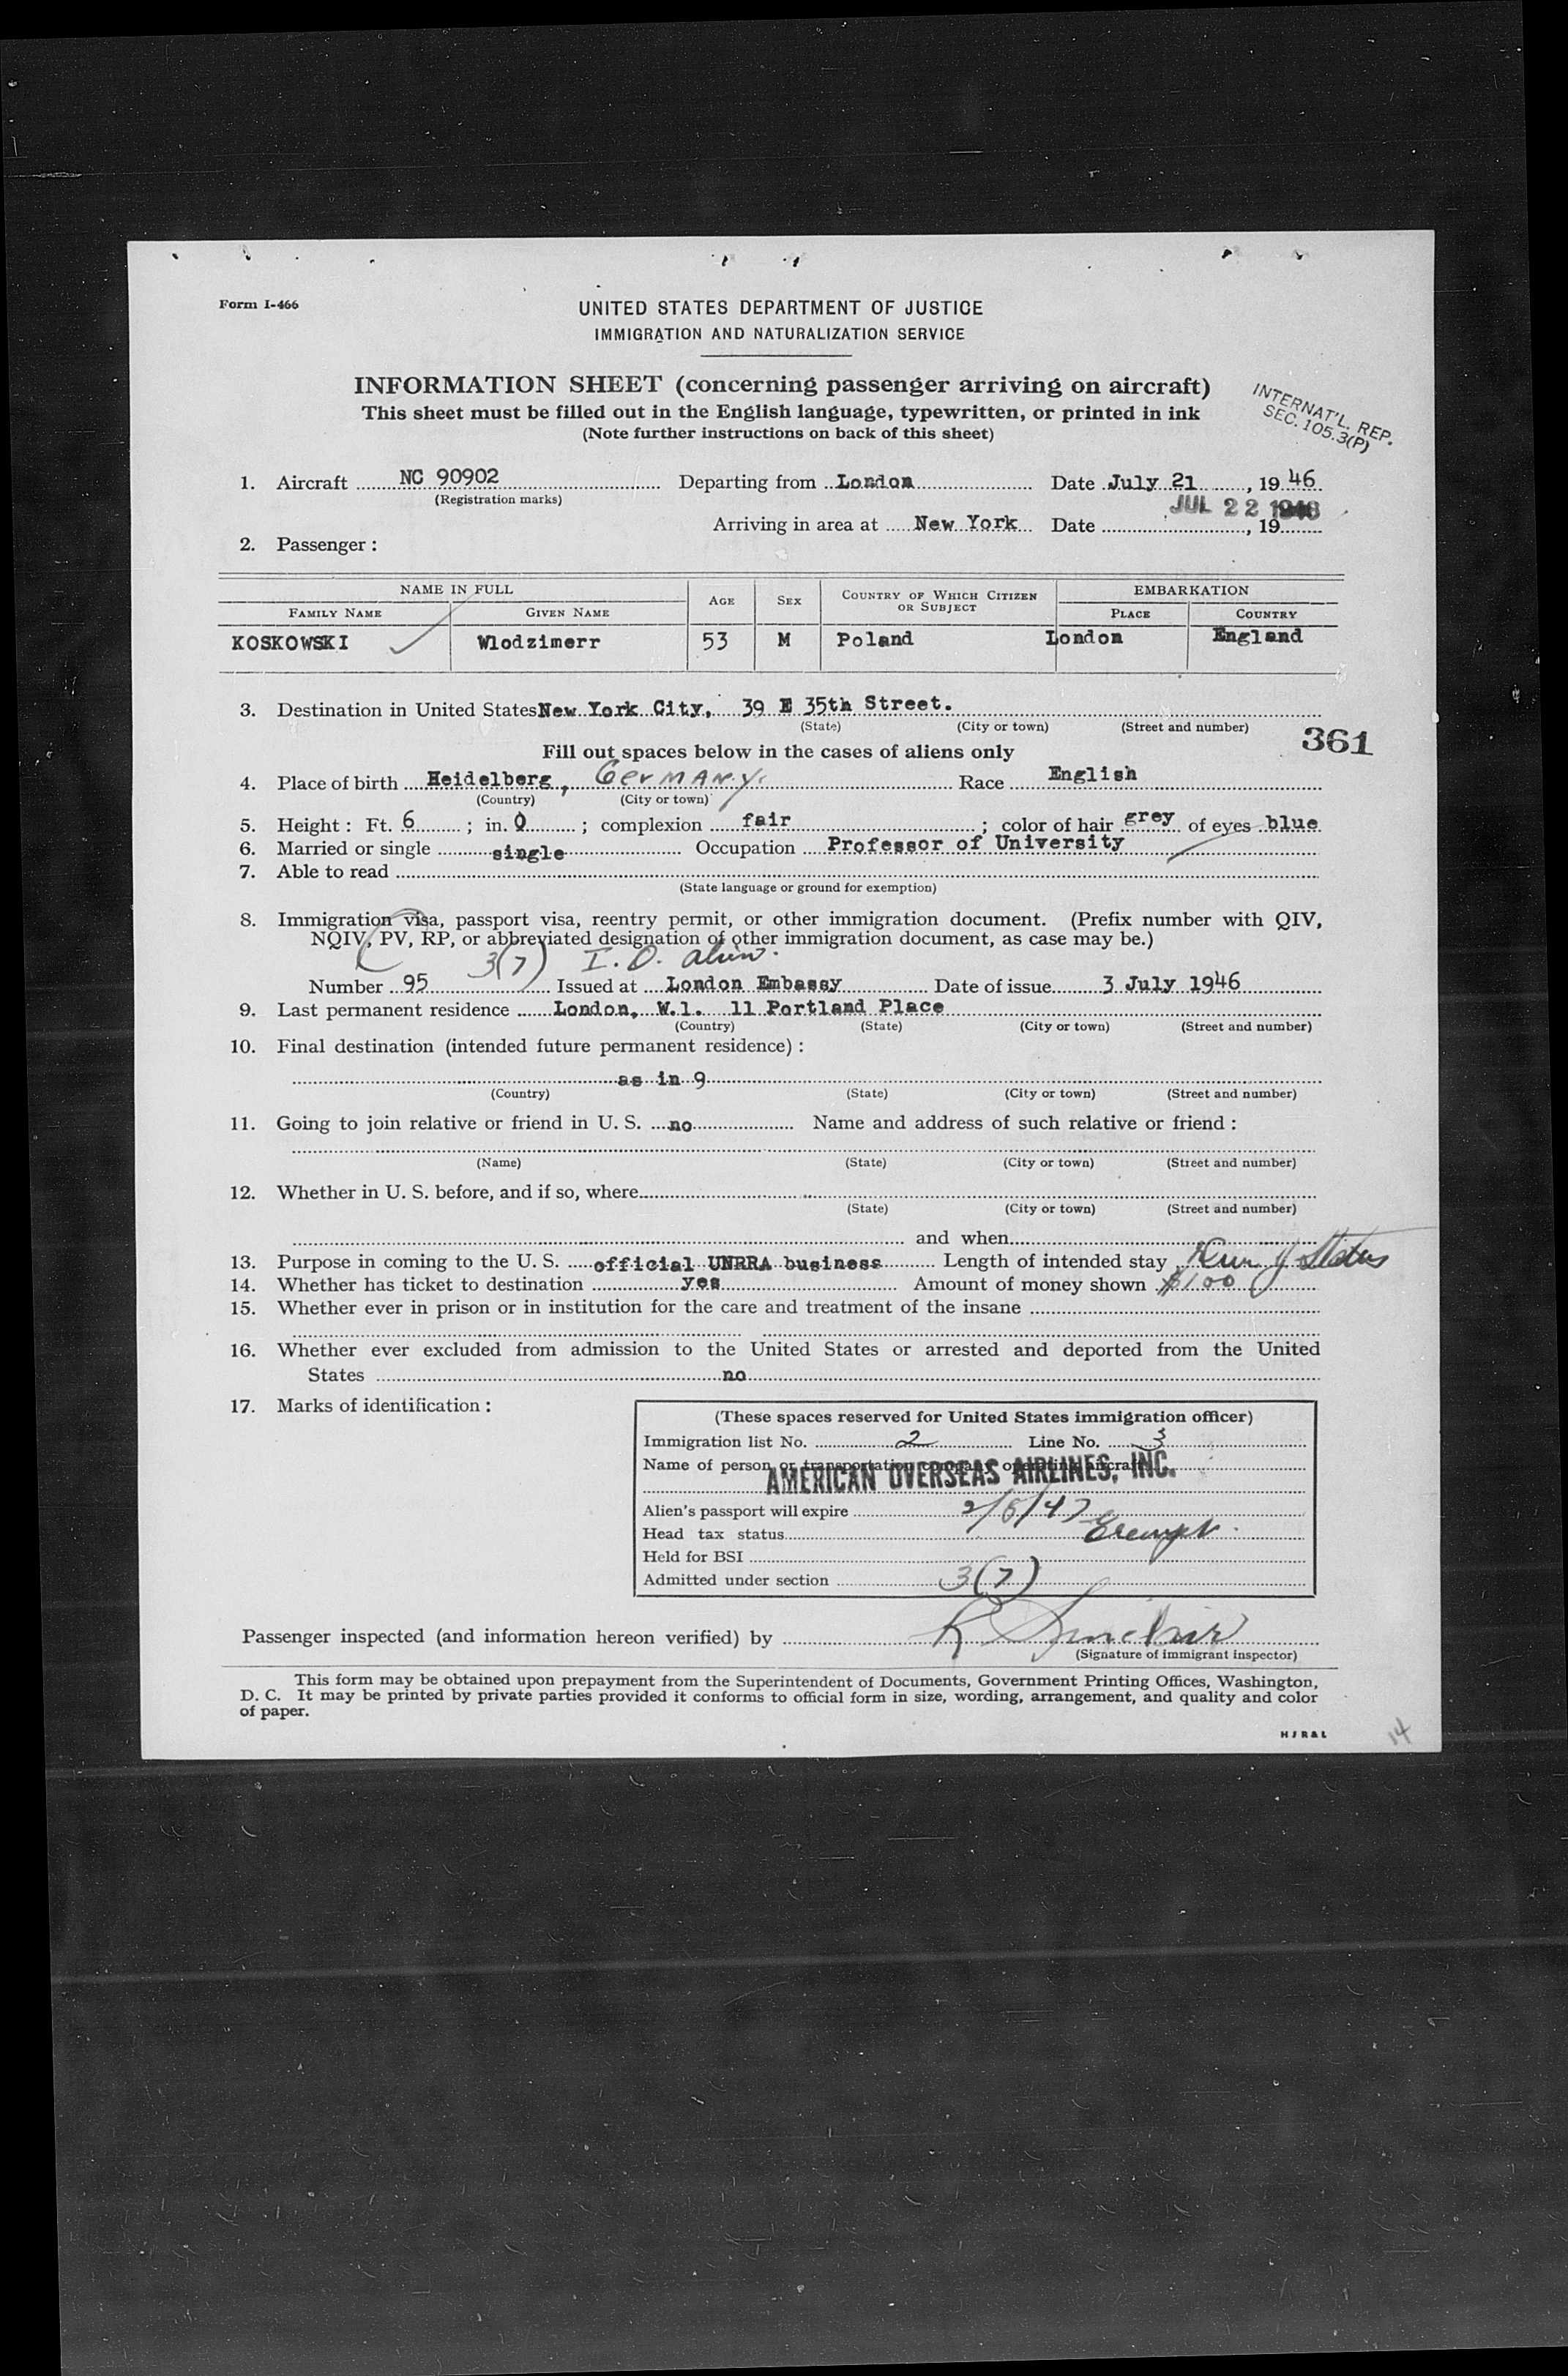 Form I-466
UNITED STATES DEPARTMENT OF JUSTICE
IMMIGRATION AND NATURALIZATION SERVICE
INFORMATION SHEET (concerning passenger arriving on aircraft)
This sheet must be filled out in the English language, typewritten, or printed in ink
(Note further instructions on back of this sheet)
INTERNAT'L. REP.
SEC. 105.3(P)
1. Aircraft NC 90902 Departing from London Date July 21, 1946
(Registration marks)
JUL 22 1946
Arriving in area at New York Date , 19
2. Passenger :
NAME IN FULL AGE SEX COUNTRY OF WHICH CITIZEN OR SUBJECT EMBARKATION
FAMILY NAME GIVEN NAME PLACE COUNTRY
KOSKOWSKI Wlodzimerr 53 M Poland London England
3. Destination in United States New York City, 39 E 35th Street.
(State) (City or town) (Street and number)
361
Fill out spaces below in the cases of aliens only
4. Place of birth Heidelberg, Germany. Race English
(Country) (City or town)
5. Height : Ft. 6 ; in. 0 ; complexion fair ; color of hair grey of eyes blue
6. Married or single single Occupation Professor of University
7. Able to read
(State language or ground for exemption)
8. Immigration visa, passport visa, reentry permit, or other immigration document. (Prefix number with QIV,
NQIV, PV, RP, or abbreviated designation of other immigration document, as case may be.)
3(7) I.O. alien.
Number 95 Issued at London Embassy Date of issue 3 July 1946
9. Last permanent residence London, W.1. 11 Portland Place
(Country) (State) (City or town) (Street and number)
10. Final destination (intended future permanent residence) :
as in 9
(Country) (State) (City or town) (Street and number)
11. Going to join relative or friend in U. S. no Name and address of such relative or friend :
(Name) (State) (City or town) (Street and number)
12. Whether in U. S. before, and if so, where
(State) (City or town) (Street and number)
and when
13. Purpose in coming to the U. S. official UNRRA business Length of intended stay Dur of Status
14. Whether has ticket to destination yes Amount of money shown $100
15. Whether ever in prison or in institution for the care and treatment of the insane
16. Whether ever excluded from admission to the United States or arrested and deported from the United
States no
17. Marks of identification :
(These spaces reserved for United States immigration officer)
Immigration list No. 2 Line No. 3
Name of person or transportation company operating aircraft
AMERICAN OVERSEAS AIRLINES, INC.
Alien's passport will expire 2/6/47
Head tax status Exempt.
Held for BSI
Admitted under section 3(7)
Passenger inspected (and information hereon verified) by R Sinclair
(Signature of immigrant inspector)
This form may be obtained upon prepayment from the Superintendent of Documents, Government Printing Offices, Washington,
D. C. It may be printed by private parties provided it conforms to official form in size, wording, arrangement, and quality and color
of paper.
HJR&L
14